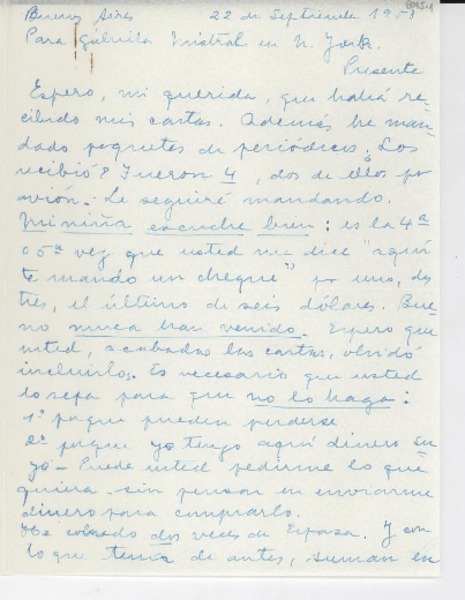 Buenos Aires 22 de Septiembre 1953
Para Gabriela Mistral en N. York.
Presente
Espero, mi querida, que habrá re-
cibido mis cartas. Además he man-
dado paquetes de periódicos. Los
recibió? Fueron 4, dos de ellos por
avión. Le seguiré mandando.
Mi niña escuche bien: es la 4ª
o 5ª vez que usted me dice "aquí
te mando un cheque" por uno, dos
tres, el último de seis dólares. Bue-
no nunca han venido. Espero que
usted, acabadas las cartas, olvidó
incluirlos. Es necesario que usted
lo sepa para que no lo haga:
1º porque pueden perderse
2º porque yo tengo aquí dinero su-
yo - Puede usted pedirme lo que
quiera sin pensar en enviarme
dinero para comprarlo.
He cobrado dos veces de Espasa. Y con
lo que tenía de antes, suman en